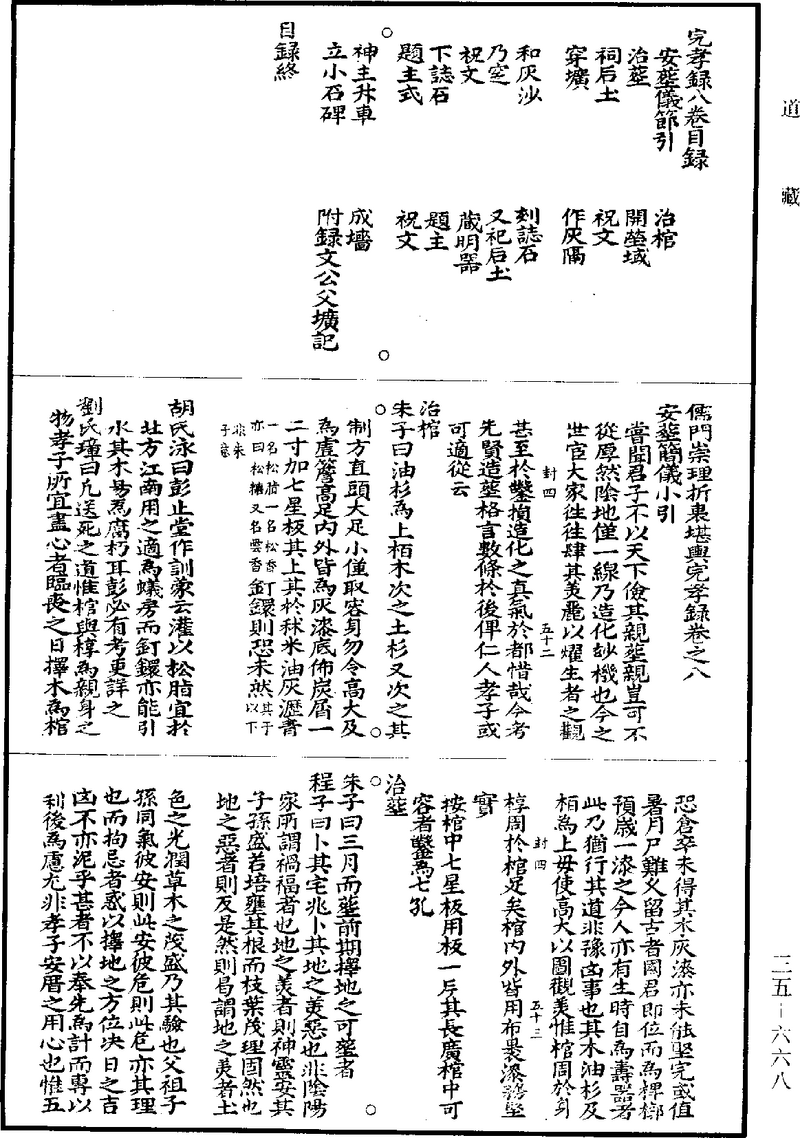 道藏
完孝録八卷目録
安塟儀節引 治棺
治塟 開塋域
祠后土 祝文
穿壙 作灰隔
和灰沙 刻誌石
乃窆 又祀后土
祝文 蔵明器
下誌石 題主
題主式 祝文
神主升車 成墻
立小石碑 附録文公父壙記
目録終
儒門崇理折衷堪輿完孝録卷之八
安塟簡儀小引
嘗聞君子不以天下儉其親塟親豈可不
從厚然陰地僅一線乃造化玅機也今之
世宦大家徃徃肆其美麗以耀生者之觀
封四 五十二
甚至於鑿損造化之真氣於都惜哉今考
先賢造塟格言數條於後俾仁人孝子或
可適從云
治棺
朱子曰油杉為上栢木次之土杉又次之其
制方直頭大足小僅取容身勿令高大及
為虛簷高足内外皆為灰漆底佈炭屑一
二寸加七星板其上其於秫米油灰瀝青
一名松脂一名松香
亦曰松櫎又名雲香釘鐶則恐未然其于以下
非朱子意
胡氏泳曰彭止堂作訓蒙云灌以松脂宜於
北方江南用之適為蟻房而釘鐶亦能引
水其木易為腐朽耳彭必有考更詳之
劉氏璋曰凢送死之道惟棺與椁為親身之
物孝子所宜盡心者臨喪之日擇木為棺
恐倉卒未得其木灰漆亦未能堅完或值
暑月尸難久留古者國君即位而為椑槨
預歳一漆之今人亦有生時自為壽器者
此乃猶行其道非豫凶事也其木油杉及
栢為上毋使高大以圖觀美惟棺周於身
封四 五十三
椁周於棺足矣棺内外皆用布裹漆務堅
實
按棺中七星板用板一片其長廣棺中可
容者鑿為七孔
治塟
朱子曰三月而塟前期擇地之可塟者
程子曰卜其宅兆卜其地之美惡也非陰陽
家所謂禍福者也地之美者則神靈安其
子孫盛若培壅其根而枝葉茂理固然也
地之惡者則反是然則曷謂地之美者土
色之光潤草木之茂盛乃其驗也父祖子
孫同氣彼安則此安彼危則此危亦其理
也而拘忌者惑以擇地之方位決日之吉
凶不亦泥乎甚者不以奉先為計而專以
利後為慮尤非孝子安厝之用心也惟五
三五－六六八